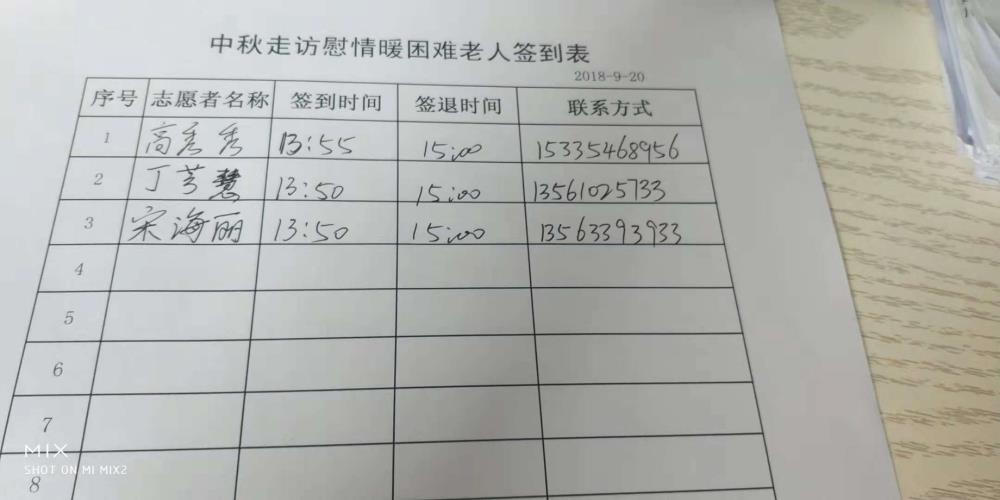 中秋走访慰情暖困难老人签到表
2018-9-20
序号 志愿者名称 签到时间 签退时间 联系方式
1 高秀秀 13:55 15:00 15335468956
2 丁兰慧 13:50 15:00 13561025733
3 宋海丽 13:50 15:00 13563393933
4
5
6
7
8
MIX
SHOT ON MI MIX2